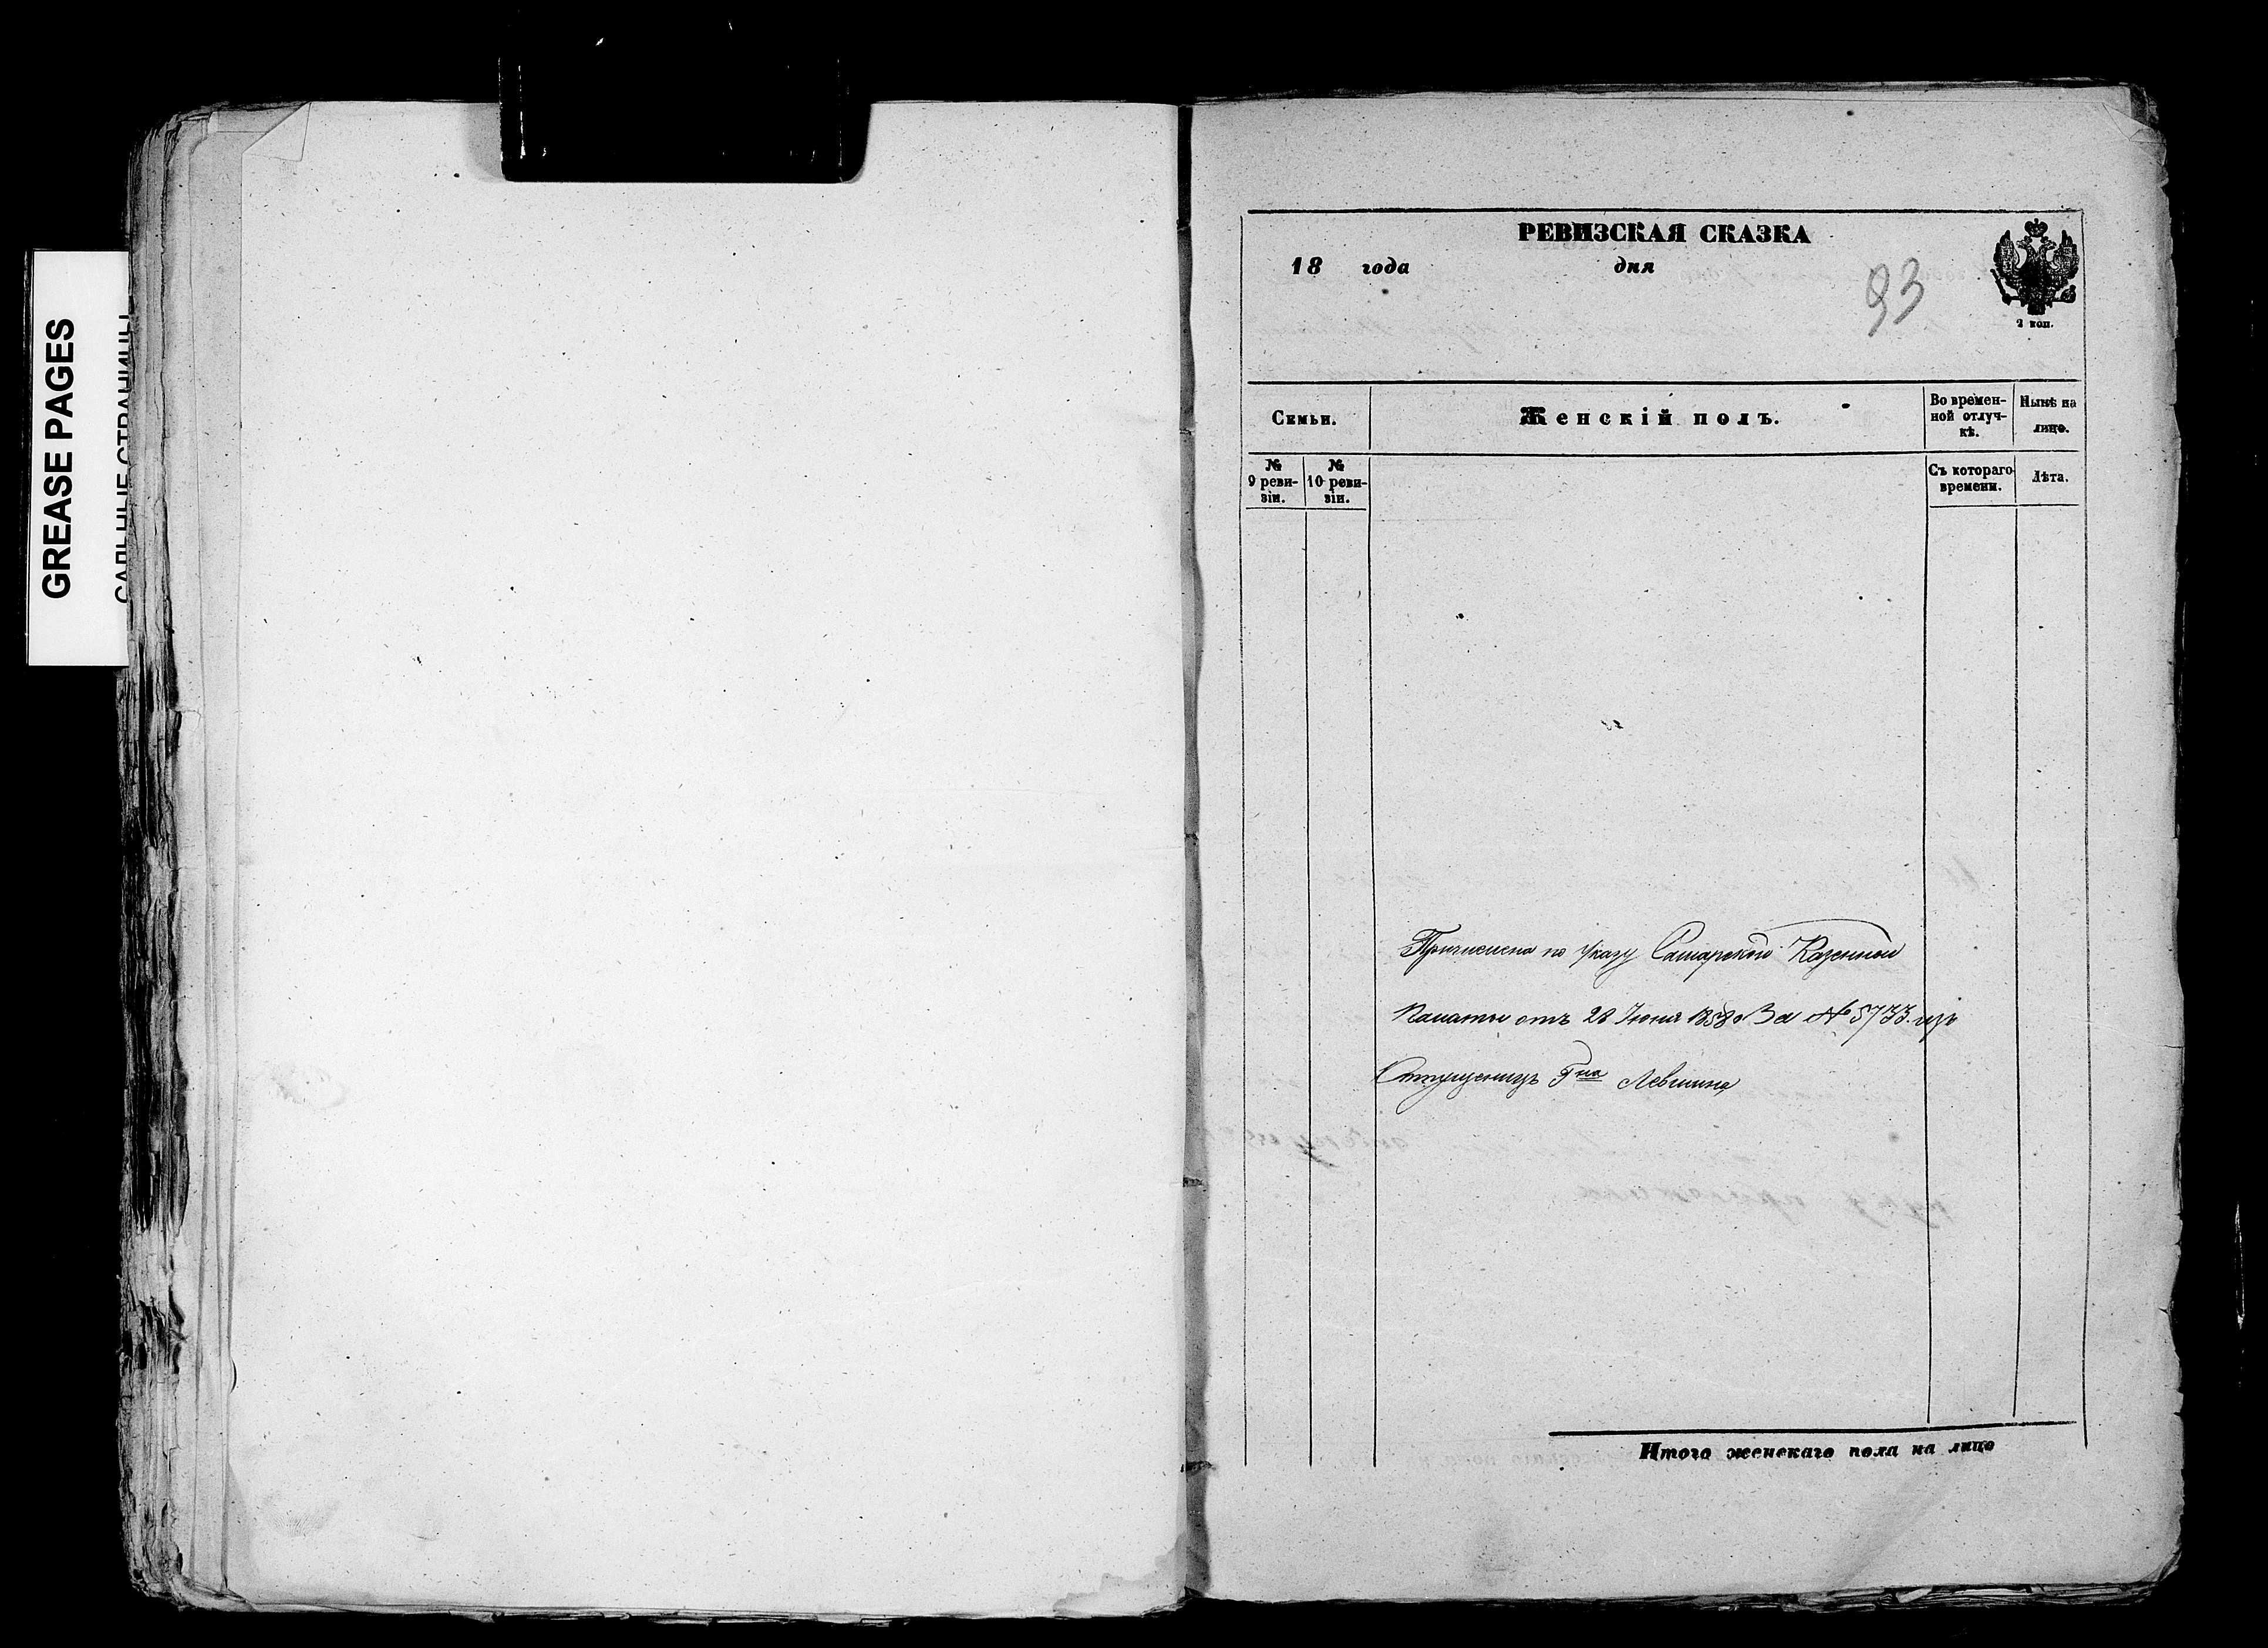 GREASE PAGES
РЕВИЗСКАЯ СКАЗКА
18 года дня
93
2 коп.
Семьи.
Женскій полъ.
Во времен-
ной отлуч-
кѣ.
Нынѣ на
лицо.
№
9 реви-
зіи.
№
10 реви-
зіи.
Съ котораго
времени.
Лѣта.
Причислена по Указу Самарской Казенной
Палаты отъ 28 Іюня 1858 За № 5733. изъ
Отпущениц Г<sup>на</sup> Левшина
Итого женскаго пола на лицо